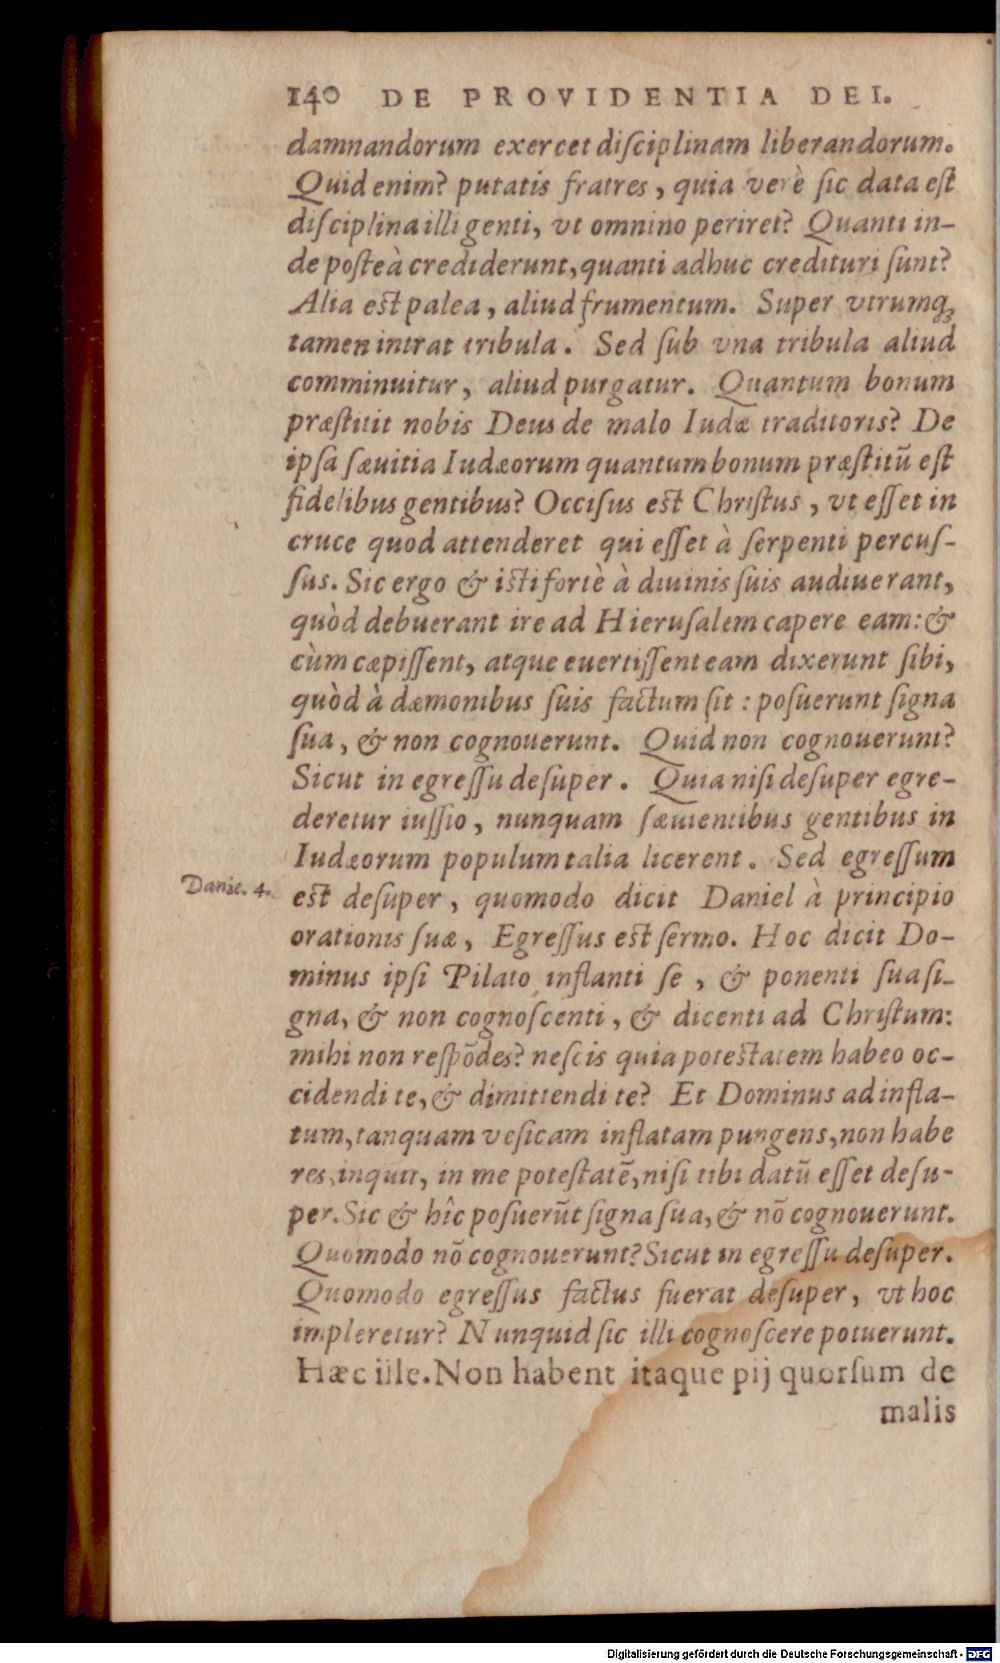 140 DE PROVIDENTIA DEI.
damnandorum exercet diſciplinam liberandorum.
Quid enim? putatis fratres, quia verè ſic data eſt
diſciplina illi genti, vt omnino periret? Quanti in-
de poſteà crediderunt, quanti adhuc credituri ſunt?
Alia eſt palea, aliud frumentum. Super vtrumq́;
tamen intrat tribula. Sed ſub vna tribula aliud
comminuitur, aliud purgatur. Quantum bonum
præſtitit nobis Deus de malo Iudæ traditoris? De
ipſa ſæuitia Iudæorum quantum bonum præſtitū eſt
fidelibus gentibus? Occiſus eſt Chriſtus, vt eſſet in
cruce quod attenderet qui eſſet à ſerpenti percuſ-
ſus. Sic ergo & iſti fortè à diuinis ſuis audiuerant,
quòd debuerant ire ad Hieruſalem capere eam: &
cùm cæpiſſent, atque euertiſſent eam dixerunt ſibi,
quòd à dæmonibus ſuis factum ſit: poſuerunt ſigna
ſua, & non cognouerunt. Quid non cognouerunt?
Sicut in egreſſu deſuper. Quia niſi deſuper egre-
deretur iuſſio, nunquam ſæuientibus gentibus in
Iudæorum populum talia licerent. Sed egreſſum
Danie. 4.
eſt deſuper, quomodo dicit Daniel à principio
orationis ſuæ, Egreſſus eſt ſermo. Hoc dicit Do-
minus ipſi Pilato inflanti ſe, & ponenti ſua ſi-
gna, & non cognoſcenti, & dicenti ad Chriſtum:
mihi non reſpōdes? neſcis quia poteſtatem habeo oc-
cidendi te, & dimittendi te? Et Dominus ad infla-
tum, tanquam veſicam inflatam pungens, non habe
res, inquit, in me poteſtatē, niſi tibi datū eſſet deſu-
per. Sic & hîc poſuerūt ſigna ſua, & nō cognouerunt.
Quomodo nō cognouerunt? Sicut in egreſſu deſuper.
Quomodo egreſſus factus fuerat deſuper, vt hoc
impleretur? Nunquid ſic illi cognoſcere potuerunt.
Hæc ille. Non habent itaque pij quorſum de
malis
Digitalisierung gefördert durch die Deutsche Forschungsgemeinschaft - DFG